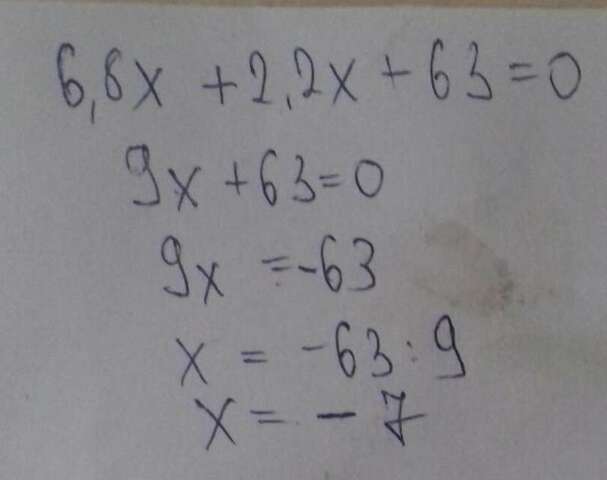 6,8x + 2,2x + 63 = 0
9x + 63 = 0
9x = -63
x = -63 : 9
x = - 7